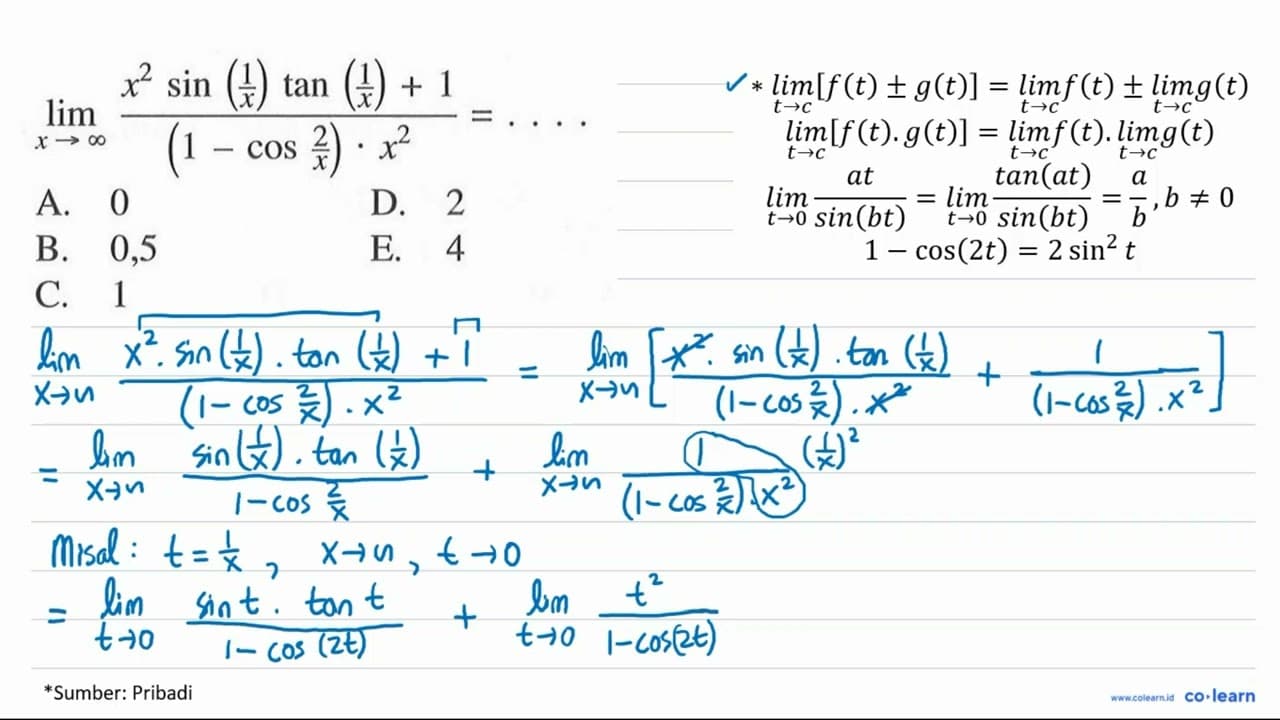 lim x → ∞ (x² sin (1/x) tan (1/x) + 1) / ((1 − cos 2/x) · x²) = . . . .
A. 0 D. 2
B. 0,5 E. 4
C. 1
✓ * lim t→c [f(t) ± g(t)] = lim t→c f(t) ± lim t→c g(t)
lim t→c [f(t). g(t)] = lim t→c f(t). lim t→c g(t)
lim t→0 at / sin(bt) = lim t→0 tan(at) / sin(bt) = a/b , b ≠ 0
1 − cos(2t) = 2 sin² t
lim x→∞ (x² . sin(1/x) . tan(1/x) + 1) / ((1 − cos 2/x) . x²) = lim x→∞ [ (x² . sin(1/x) . tan(1/x)) / ((1 − cos 2/x) . x²) + 1 / ((1 − cos 2/x) . x²) ]
= lim x→∞ (sin(1/x) . tan(1/x)) / (1 − cos 2/x) + lim x→∞ 1 / ((1 − cos 2/x) . x²) (1/x)²
Misal : t = 1/x , x→∞ , t→0
= lim t→0 (sin t . tan t) / (1 − cos (2t)) + lim t→0 t² / (1 − cos(2t))
*Sumber: Pribadi
www.colearn.id co·learn